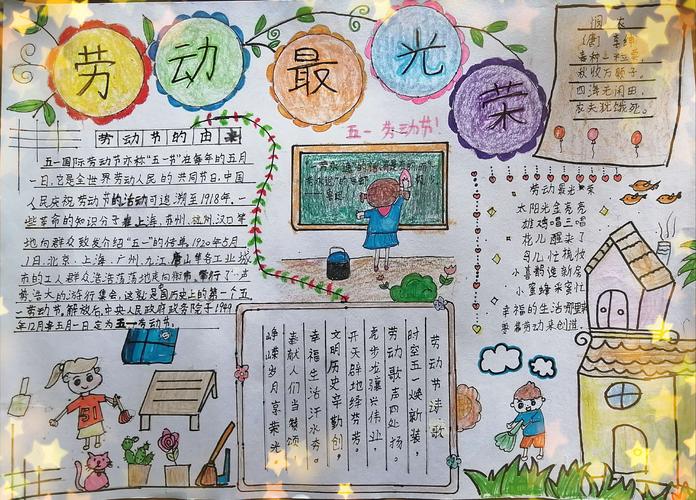 劳动最光荣
悯农
(唐) 李绅
春种一粒粟,
秋收万颗子,
四海无闲田,
农夫犹饿死。
五一 劳动节!
劳动节的由来
五一国际劳动节亦称"五一"节在每年的五月
一日,它是全世界劳动人民的共同节日,中国
人民庆祝劳动节的活动可追溯至1918年,一
些革命的知识分子在上海,苏州,汉口等
地向群众散发介绍"五一"的传单,1920年5月
1日,北京,上海,广州,九江,唐山等各工业城
市的工人群众浩浩荡荡地走向街市,举行了一声
势浩大的游行集会,这就是国历史上的第一个五
一劳动节,解放后,中央人民政府政务院于1949
年12月5月一日定为五一劳动节。
劳动最光荣
太阳光金亮亮
雄鸡唱三唱
花儿醒来了
鸟儿忙梳妆
小喜鹊造新房
小蜜蜂采蜜忙
幸福的生活哪里来
要靠劳动来创造
劳动节诗歌
时空五一焕新装,
劳动歌声四处扬。
虎步龙骧兴伟业,
开天辟地
文明历史辛勤创,
幸福生活汗水夯。
奉献人们当赞颂
峥嵘岁月享荣光
51